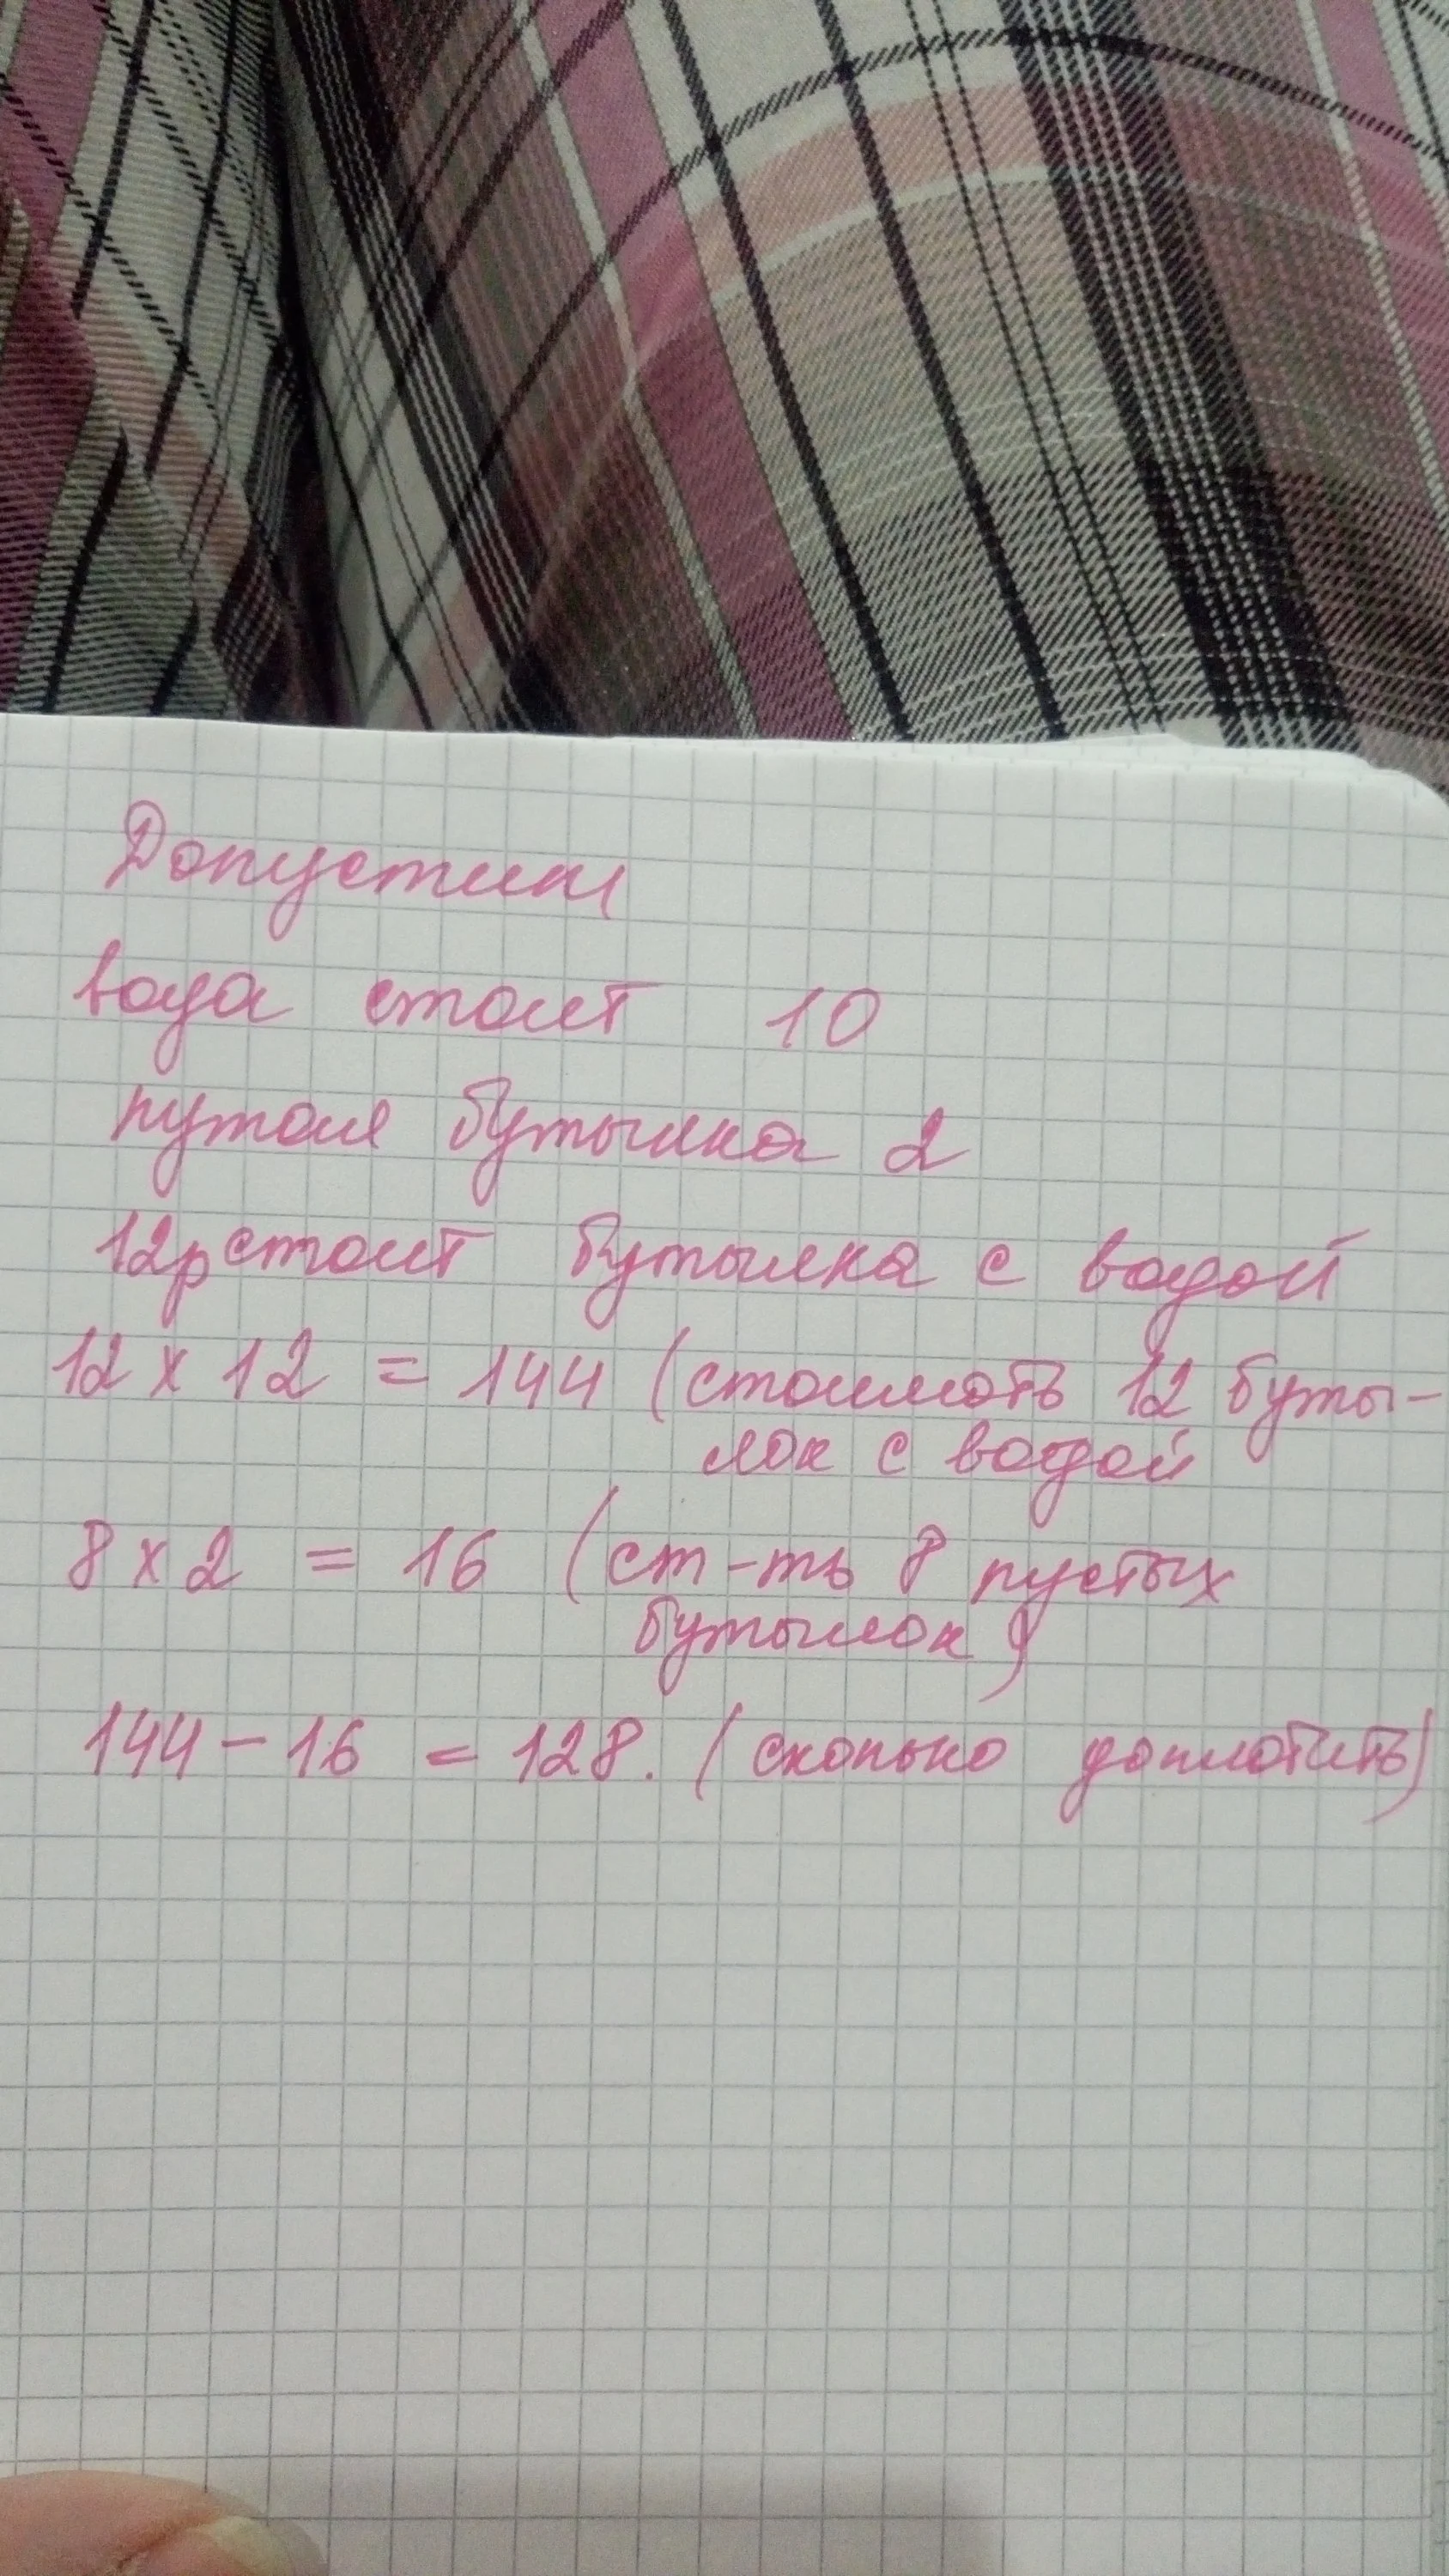 Допустим
вода стоит 10
путая бутылка 2
12р стоит бутылка с водой
12 х 12 = 144 (стоимоть 12 буты-
лок с водой
8 х 2 = 16 (ст-ть 8 пустых
бутылок)
144 - 16 = 128. (сколько доплотить)